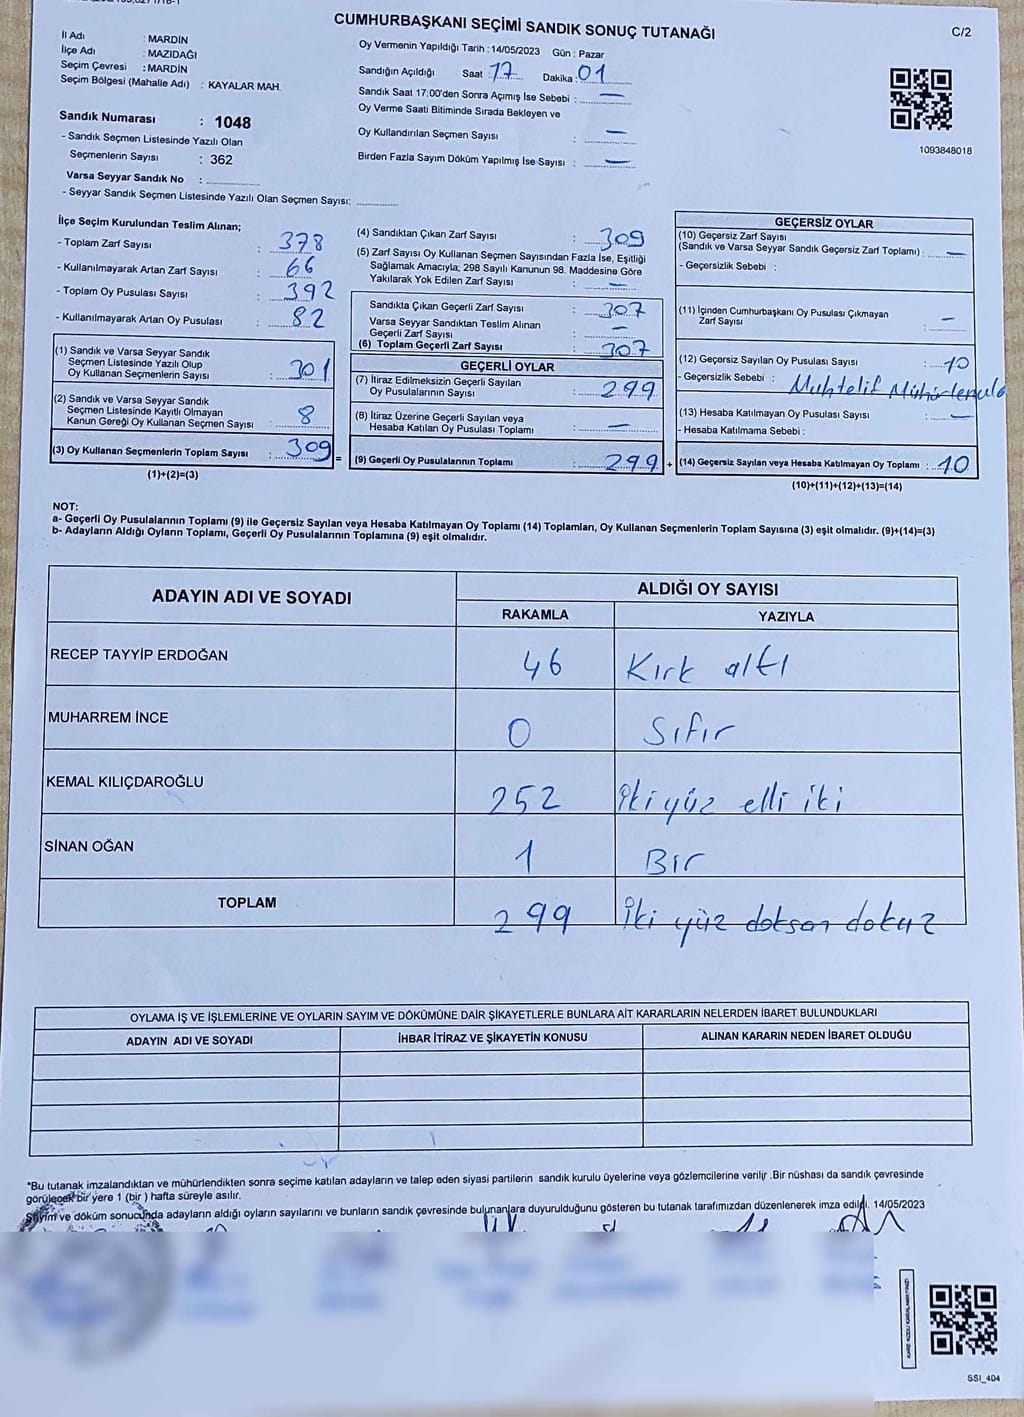 CUMHURBAŞKANI SEÇİMİ SANDIK SONUÇ TUTANAĞI
C/2
İl Adı : MARDİN
İlçe Adı : MAZIDAĞI
Seçim Çevresi : MARDİN
Seçim Bölgesi (Mahalle Adı) : KAYALAR MAH.
Sandık Numarası : 1048
- Sandık Seçmen Listesinde Yazılı Olan
Seçmenlerin Sayısı : 362
Varsa Seyyar Sandık No :
- Seyyar Sandık Seçmen Listesinde Yazılı Olan Seçmen Sayısı:
Oy Vermenin Yapıldığı Tarih : 14/05/2023 Gün : Pazar
Sandığın Açıldığı Saat : 17 Dakika : 01
Sandık Saat 17:00'den Sonra Açımış İse Sebebi : —
Oy Verme Saati Bitiminde Sırada Bekleyen ve
Oy Kullandırılan Seçmen Sayısı : —
Birden Fazla Sayım Döküm Yapılmış İse Sayısı : —
1093848018
İlçe Seçim Kurulundan Teslim Alınan;
- Toplam Zarf Sayısı : 378
- Kullanılmayarak Artan Zarf Sayısı : 66
- Toplam Oy Pusulası Sayısı : 392
- Kullanılmayarak Artan Oy Pusulası : 82
(1) Sandık ve Varsa Seyyar Sandık
Seçmen Listesinde Yazılı Olup
Oy Kullanan Seçmenlerin Sayısı : 301
(2) Sandık ve Varsa Seyyar Sandık
Seçmen Listesinde Kayıtlı Olmayan
Kanun Gereği Oy Kullanan Seçmen Sayısı : 8
(3) Oy Kullanan Seçmenlerin Toplam Sayısı : 309 =
(1)+(2)=(3)
(4) Sandıktan Çıkan Zarf Sayısı : 309
(5) Zarf Sayısı Oy Kullanan Seçmen Sayısından Fazla İse, Eşitliği
Sağlamak Amacıyla; 298 Sayılı Kanunun 98. Maddesine Göre
Yakılarak Yok Edilen Zarf Sayısı : —
Sandıkta Çıkan Geçerli Zarf Sayısı : 307
Varsa Seyyar Sandıktan Teslim Alınan
Geçerli Zarf Sayısı : —
(6) Toplam Geçerli Zarf Sayısı : 307
GEÇERLİ OYLAR
(7) İtiraz Edilmeksizin Geçerli Sayılan
Oy Pusulalarının Sayısı : 299
(8) İtiraz Üzerine Geçerli Sayılan veya
Hesaba Katılan Oy Pusulası Toplamı : —
(9) Geçerli Oy Pusulalarının Toplamı : 299 +
GEÇERSİZ OYLAR
(10) Geçersiz Zarf Sayısı
(Sandık ve Varsa Seyyar Sandık Geçersiz Zarf Toplamı) : —
- Geçersizlik Sebebi :
(11) İçinden Cumhurbaşkanı Oy Pusulası Çıkmayan
Zarf Sayısı : —
(12) Geçersiz Sayılan Oy Pusulası Sayısı : 10
- Geçersizlik Sebebi : Muhtelif
(13) Hesaba Katılmayan Oy Pusulası Sayısı : —
- Hesaba Katılmama Sebebi :
(14) Geçersiz Sayılan veya Hesaba Katılmayan Oy Toplamı : 10
(10)+(11)+(12)+(13)=(14)
NOT:
a- Geçerli Oy Pusulalarının Toplamı (9) ile Geçersiz Sayılan veya Hesaba Katılmayan Oy Toplamı (14) Toplamları, Oy Kullanan Seçmenlerin Toplam Sayısına (3) eşit olmalıdır. (9)+(14)=(3)
b- Adayların Aldığı Oyların Toplamı, Geçerli Oy Pusulalarının Toplamına (9) eşit olmalıdır.
ADAYIN ADI VE SOYADI ALDIĞI OY SAYISI
RAKAMLA YAZIYLA
RECEP TAYYİP ERDOĞAN 46 Kırk altı
MUHARREM İNCE 0 Sıfır
KEMAL KILIÇDAROĞLU 252 iki yüz elli iki
SİNAN OĞAN 1 Bir
TOPLAM 299 iki yüz doksan dokuz
OYLAMA İŞ VE İŞLEMLERİNE VE OYLARIN SAYIM VE DÖKÜMÜNE DAİR ŞİKAYETLERLE BUNLARA AİT KARARLARIN NELERDEN İBARET BULUNDUKLARI
ADAYIN ADI VE SOYADI İHBAR İTİRAZ VE ŞİKAYETİN KONUSU ALINAN KARARIN NEDEN İBARET OLDUĞU
*Bu tutanak imzalandıktan ve mühürlendikten sonra seçime katılan adayların ve talep eden siyasi partilerin sandık kurulu üyelerine veya gözlemcilerine verilir .Bir nüshası da sandık çevresinde
görülecek bir yere 1 (bir ) hafta süreyle asılır.
Sayım ve döküm sonucunda adayların aldığı oyların sayılarını ve bunların sandık çevresinde bulunanlara duyurulduğunu gösteren bu tutanak tarafımızdan düzenlenerek imza edildi. 14/05/2023
SSI_404